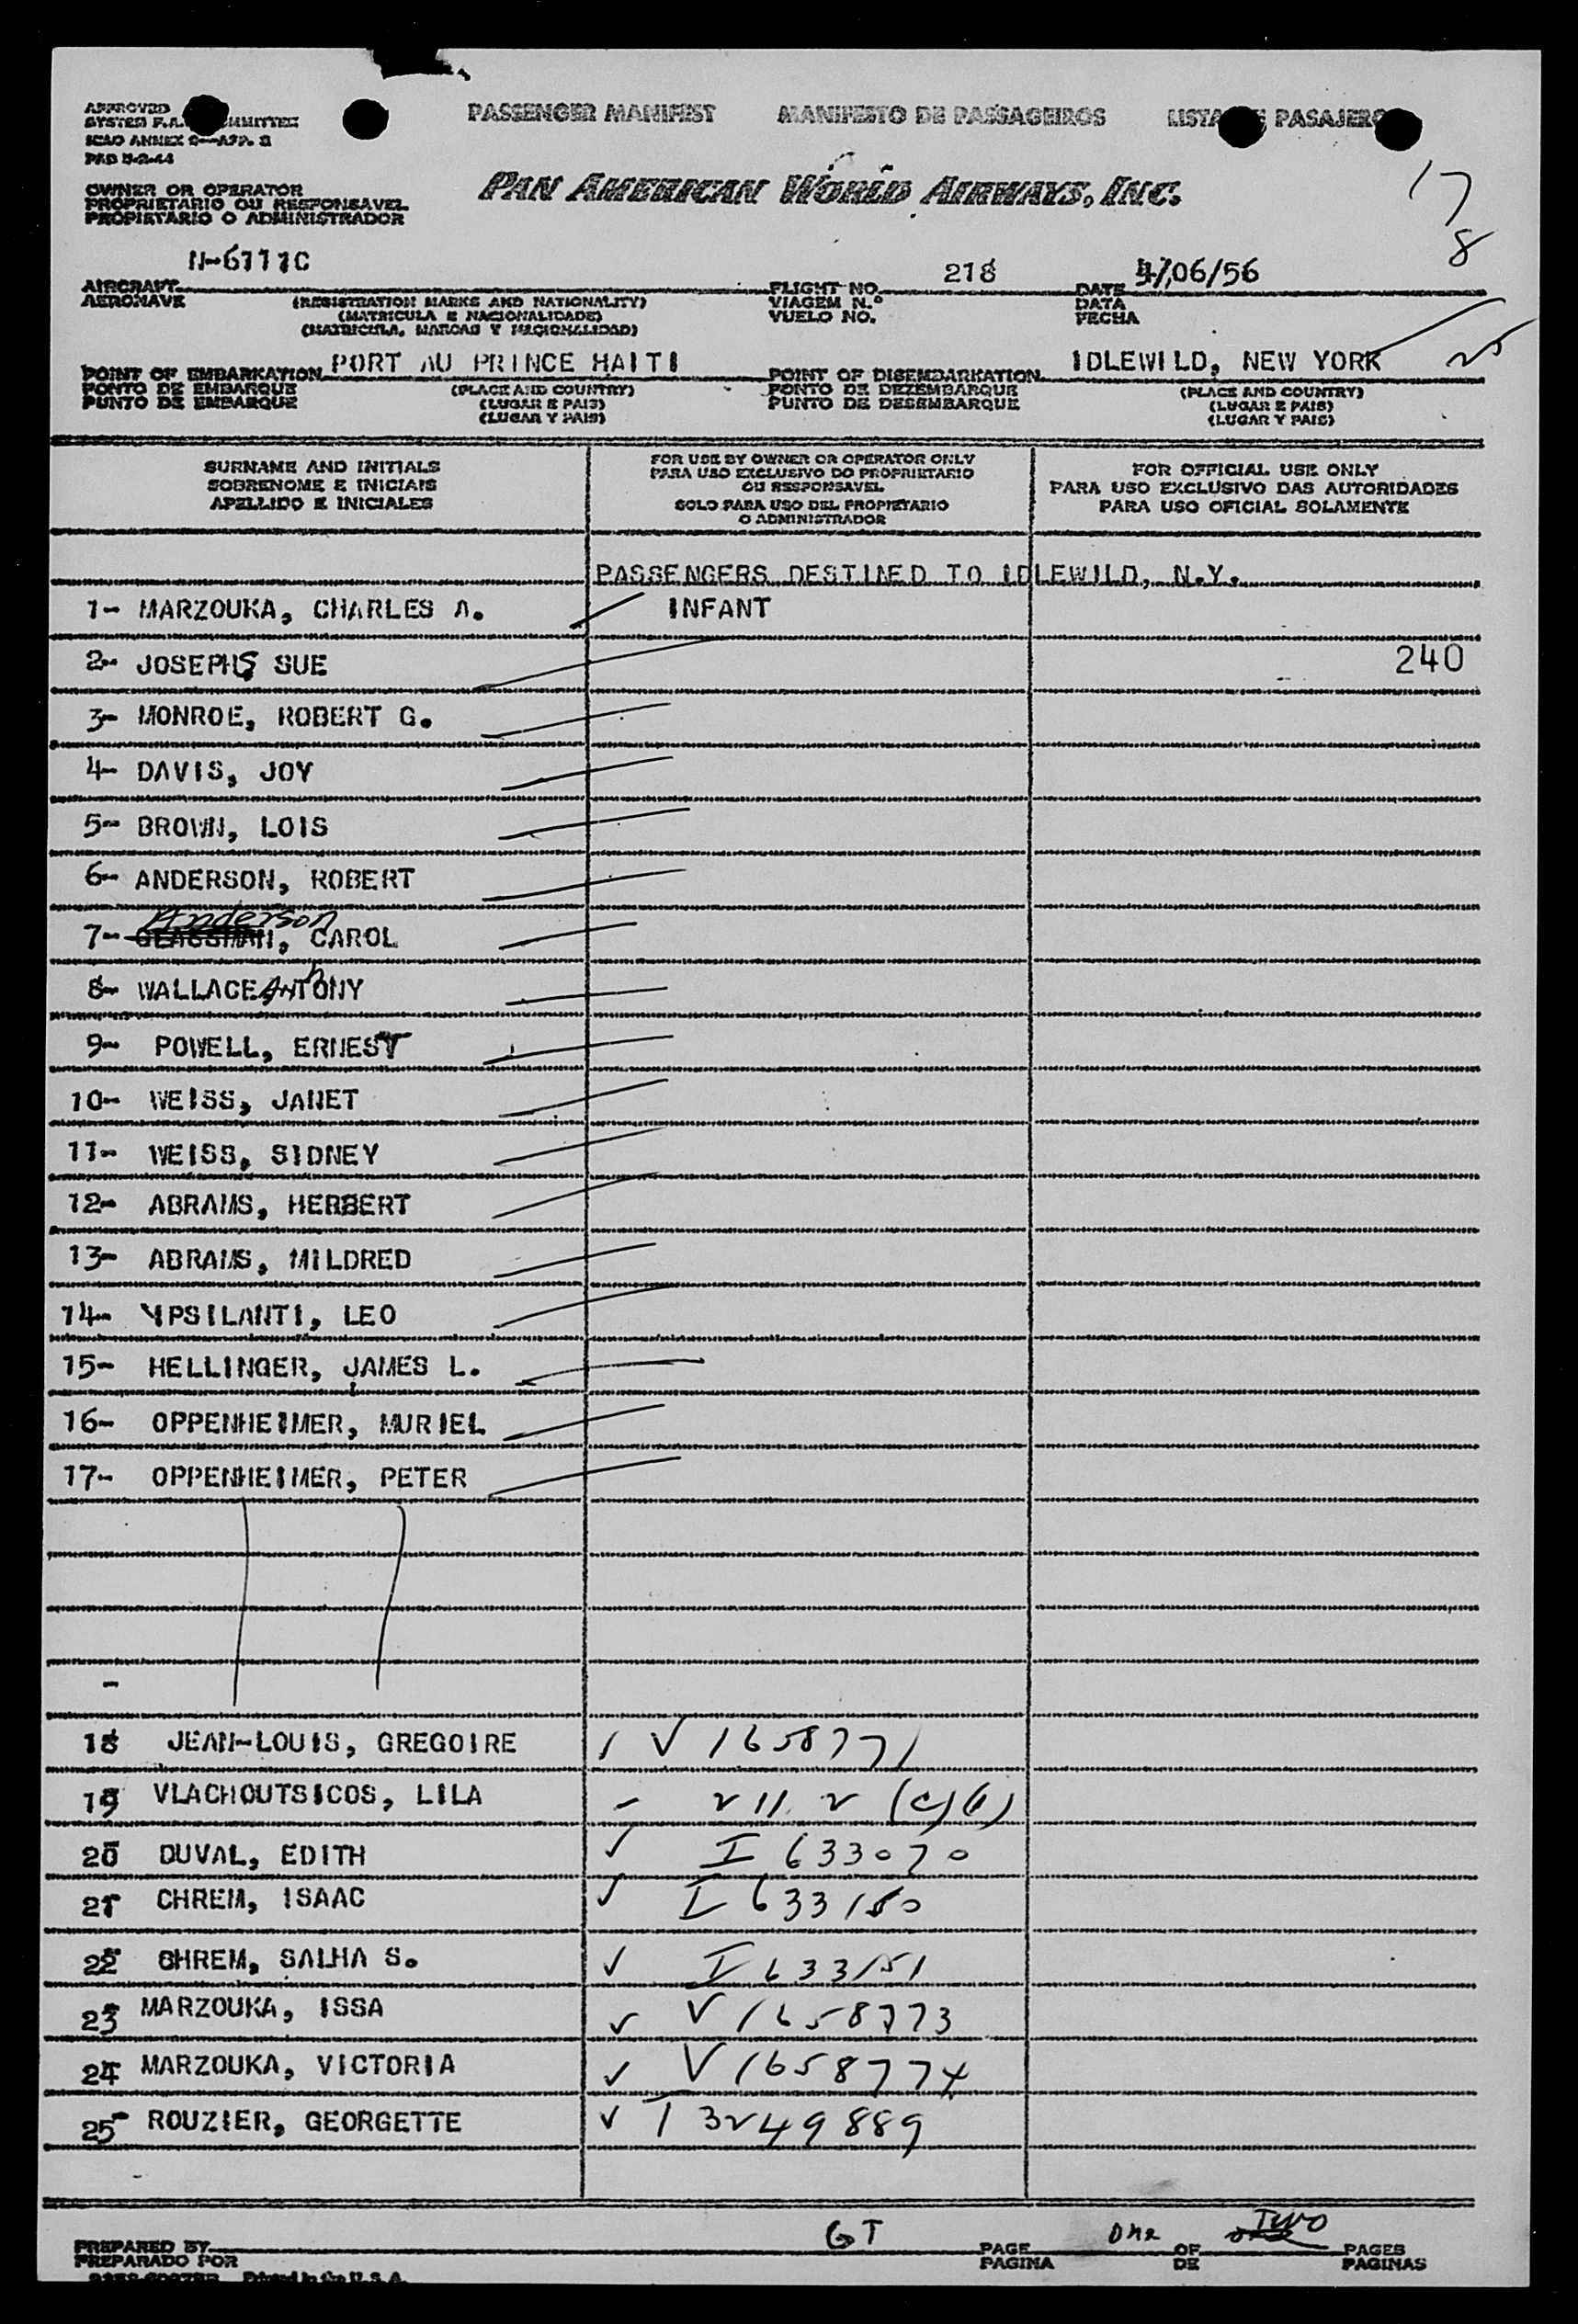 PASSENGER MANIFEST MANIFESTO DE PASSAGEIROS LISTA PASAJERO
APPROVED
SYSTEM F.A.
ICAO ANNEX 9—APP. 3
PAN AMERICAN WORLD AIRWAYS, INC.
17
8
OWNER OR OPERATOR
PROPRIETARIO OU RESPONSAVEL
PROPIETARIO O ADMINISTRADOR
N-6111C 218 /06/56
AIRCRAFT FLIGHT NO. DATE
AERONAVE (REGISTRATION MARKS AND NATIONALITY) VIAGEM N.º DATA
(MATRICULA E NACIONALIDADE) VUELO NO. FECHA
(MATRICULA, MARCAS Y NACIONALIDAD)
25
POINT OF EMBARKATION PORT AU PRINCE HAITI POINT OF DISEMBARKATION IDLEWILD, NEW YORK
PONTO DE EMBARQUE (PLACE AND COUNTRY) PONTO DE DEZEMBARQUE (PLACE AND COUNTRY)
PUNTO DE EMBARQUE (LUGAR E PAIS) PUNTO DE DESEMBARQUE (LUGAR E PAIS)
(LUGAR Y PAIS) (LUGAR Y PAIS)
SURNAME AND INITIALS
SOBRENOME E INICIAIS
APELLIDO E INICIALES
FOR USE BY OWNER OR OPERATOR ONLY
PARA USO EXCLUSIVO DO PROPRIETARIO
OU RESPONSAVEL
SOLO PARA USO DEL PROPIETARIO
O ADMINISTRADOR
FOR OFFICIAL USE ONLY
PARA USO EXCLUSIVO DAS AUTORIDADES
PARA USO OFICIAL SOLAMENTE
PASSENGERS DESTINED TO IDLEWILD, N.Y.
1- MARZOUKA, CHARLES A. INFANT
2- JOSEPHS SUE 240
3- MONROE, ROBERT G.
4- DAVIS, JOY
5- BROWN, LOIS
6- ANDERSON, ROBERT
Anderson
7- GLASSMAN, CAROL
8- WALLACE, ANThONY
9- POWELL, ERNEST
10- WEISS, JANET
11- WEISS, SIDNEY
12- ABRAMS, HERBERT
13- ABRAMS, MILDRED
14- YPSILANTI, LEO
15- HELLINGER, JAMES L.
16- OPPENHEIMER, MURIEL
17- OPPENHEIMER, PETER
-
18 JEAN-LOUIS, GREGOIRE V 1658771
19 VLACHOUTSICOS, LILA
20 DUVAL, EDITH I 633070
21 CHREM, ISAAC I 633150
22 CHREM, SALHA S. I 633151
23 MARZOUKA, ISSA V 1658773
24 MARZOUKA, VICTORIA V 1658774
25 ROUZIER, GEORGETTE T 3249889
PREPARED BY GT PAGE One OF one Two PAGES
PREPARADO POR PAGINA DE PAGINAS
Printed in the U.S.A.